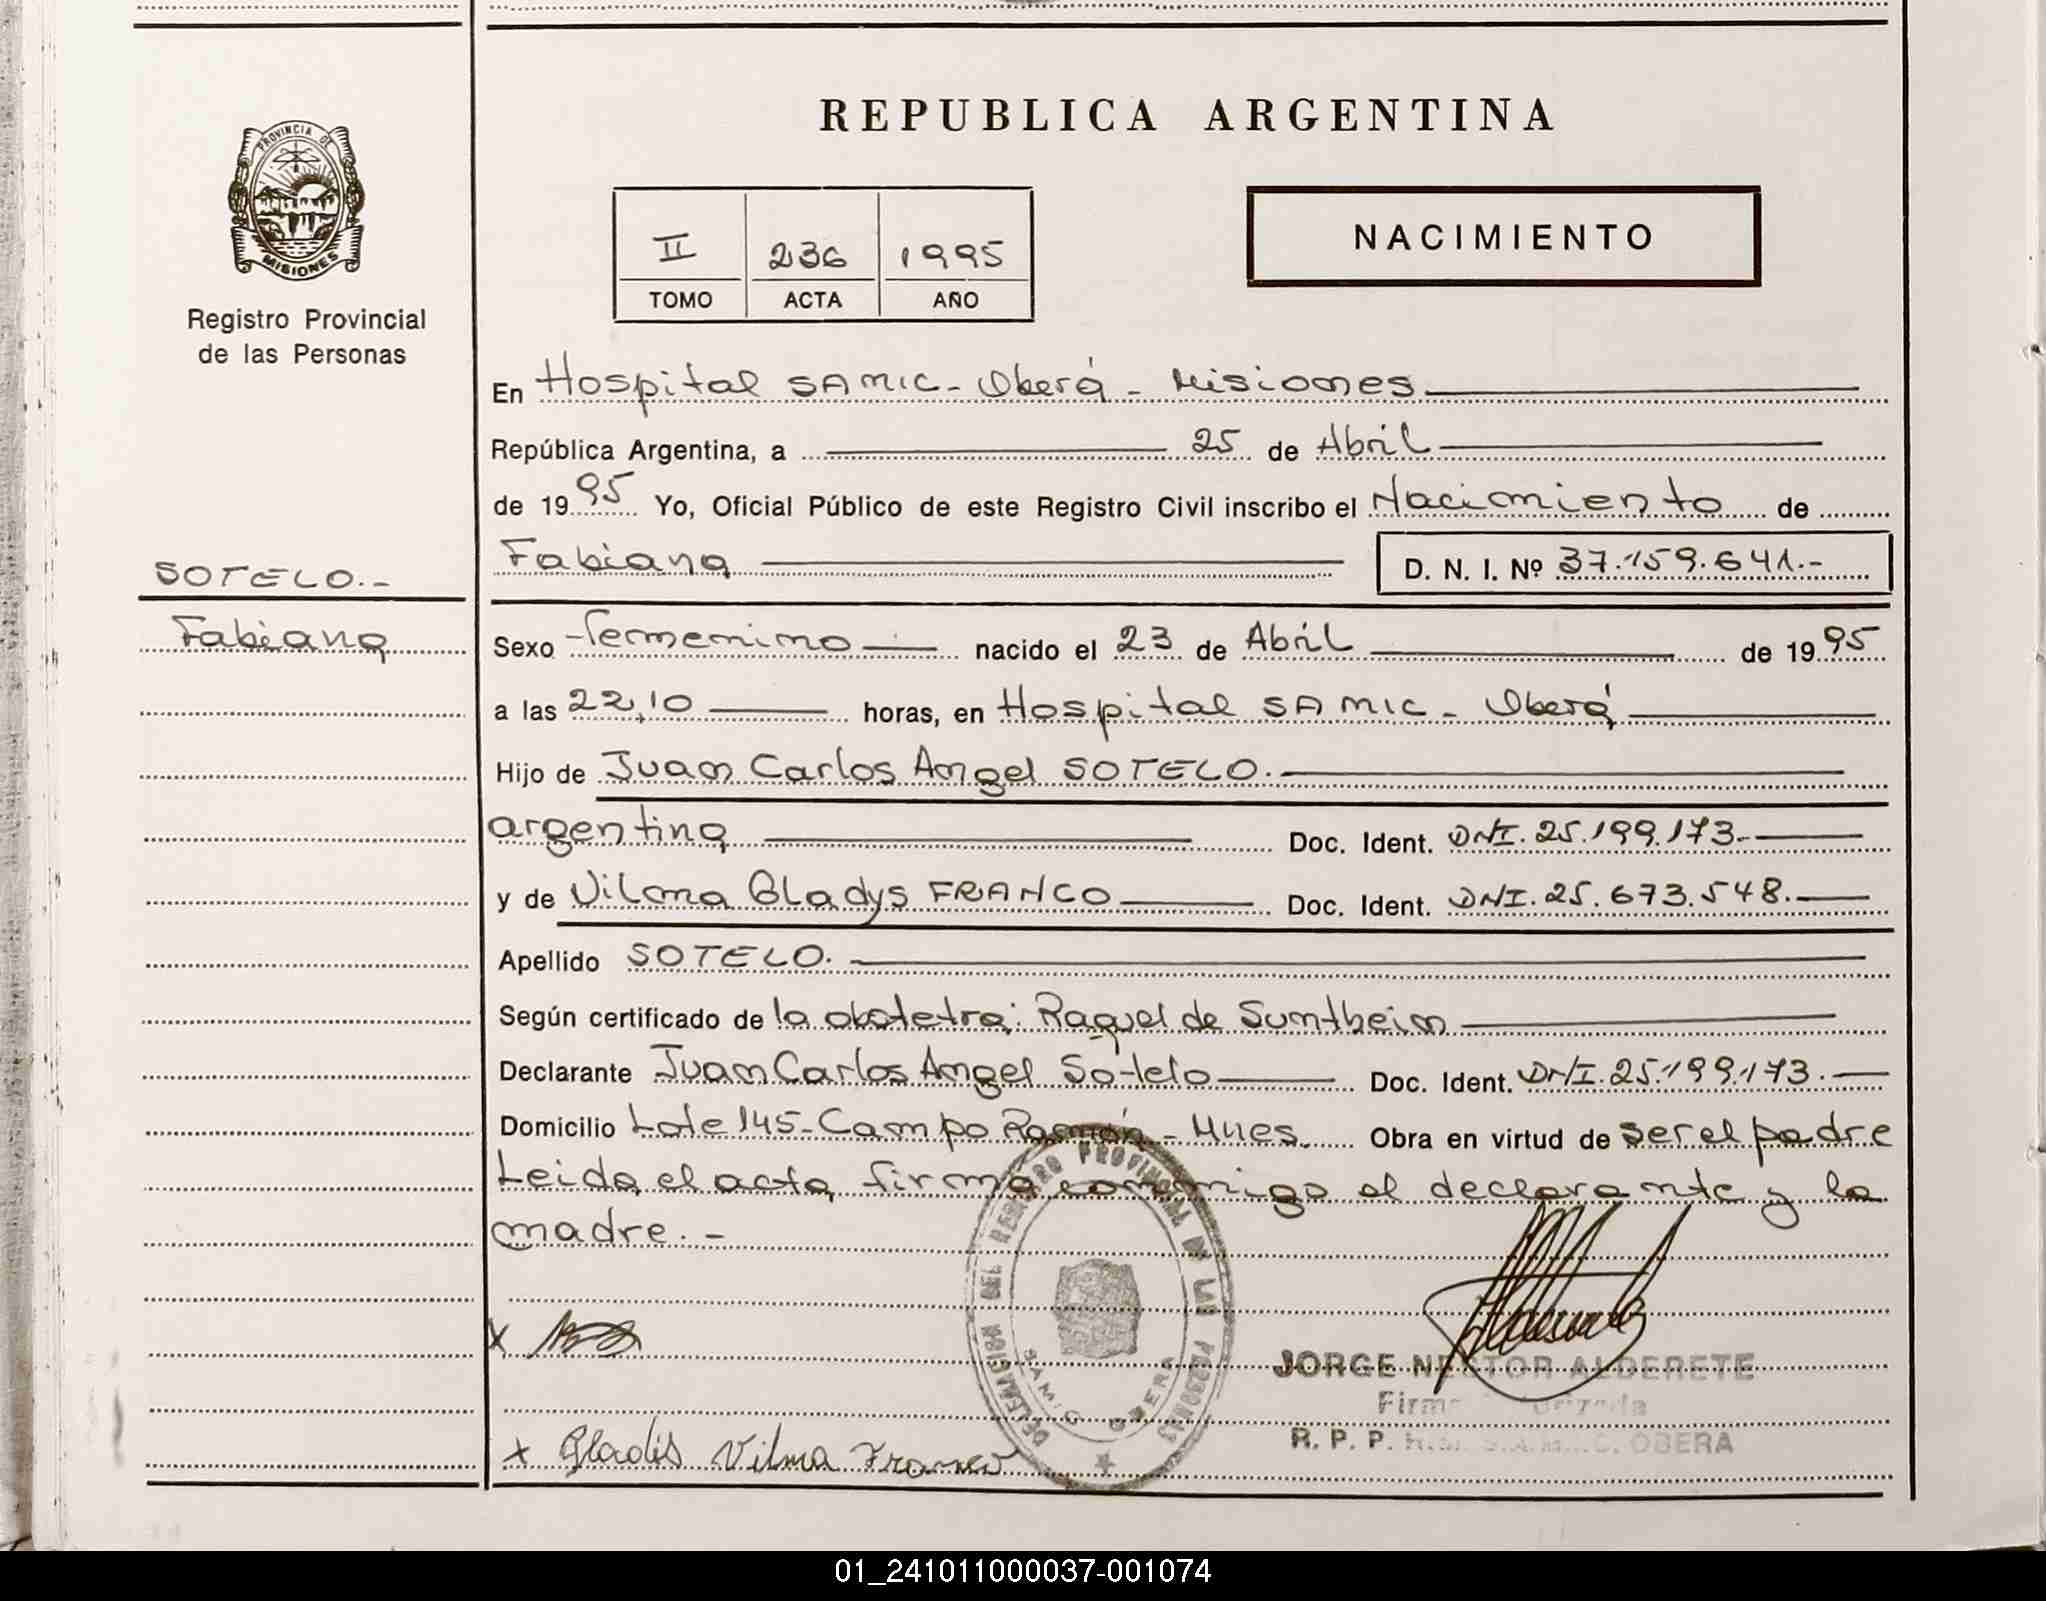 REPUBLICA ARGENTINA
PROVINCIA DE
MISIONES
Registro Provincial
de las Personas
II 236 1995
TOMO ACTA AÑO
NACIMIENTO
En Hospital SAMIC - Oberá - Misiones
República Argentina, a 25 de Abril
de 1995 Yo, Oficial Público de este Registro Civil inscribo el Nacimiento de
Fabiana D. N. I. Nº 37.159.641.-
SOTELO.-
Fabiana
Sexo Femenino nacido el 23 de Abril de 1995
a las 22,10 horas, en Hospital SAMIC - Oberá
Hijo de Juan Carlos Angel SOTELO.
argentina Doc. Ident. DNI. 25.199.173.-
y de Vilma Gladys FRANCO Doc. Ident. DNI. 25.673.548.-
Apellido SOTELO.
Según certificado de la obstetra: Raquel de Suntheim
Declarante Juan Carlos Angel Sotelo Doc. Ident. DNI. 25.199.173.-
Domicilio Lote 145 - Campo Ramón - Mnes. Obra en virtud de ser el padre
Leida el acta, firma conmigo el declarante y la
madre. -
DELEGACION DEL REGISTRO PROVINCIAL DE LAS PERSONAS
SAMIC OBERA
JORGE NESTOR ALDERETE
Firma
R. P. P. S.A.M.I.C. OBERA
x
x Gladis Vilma Franco
01_241011000037-001074